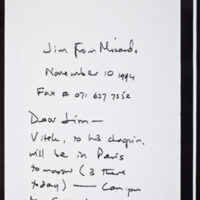 Jim from Miranda.
November 10 1994
Fax # 071 637 7252
Dear Jim—
Vitek, to his chagrin,
will be in Paris
tomorrow (is there
today) — Can you